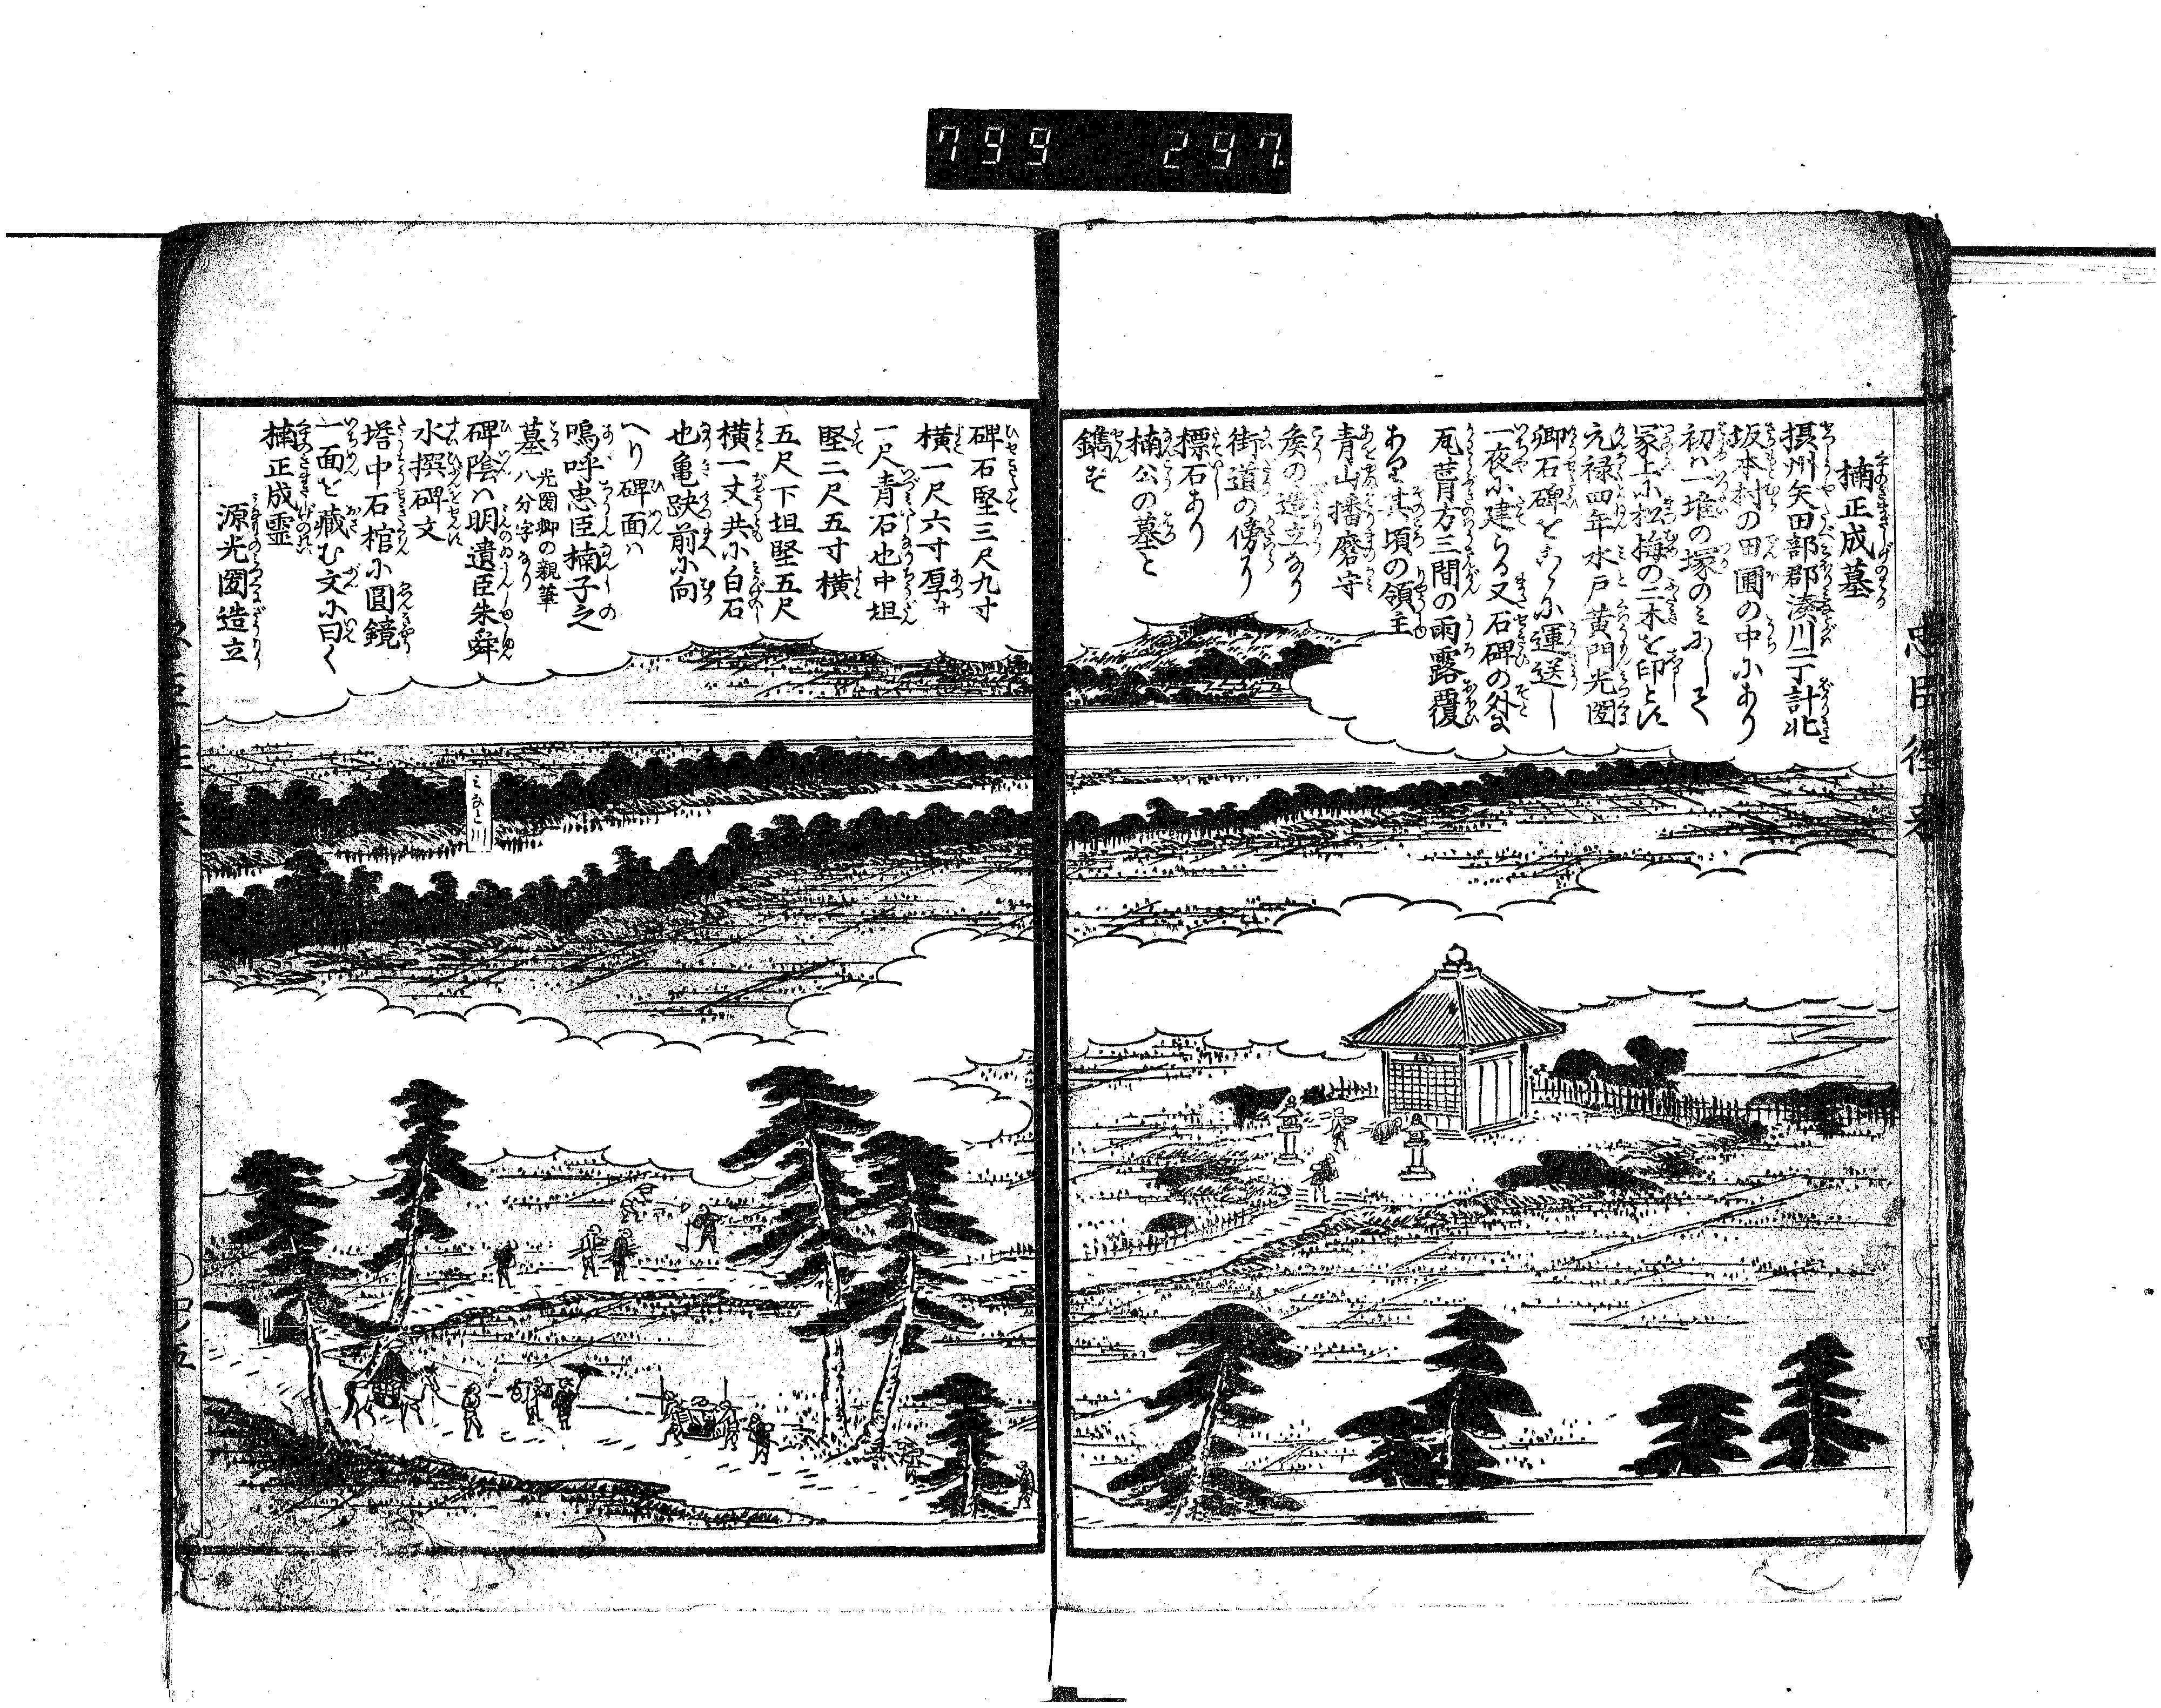 799 297
楠正成墓
摂州矢田部郡湊川二丁計北
坂本村の田圃の中にあり
初ハ一堆の塚のミにして
冢上に松梅の二木を印とす
元禄四年水戸黄門光圀
卿石碑をこゝに運送し
一夜に建らる又石碑の外に
瓦葺方三間の雨露覆
あり其頃の領主
青山播磨守
矦の造立なり
街道の傍り
標石あり
楠公の墓と
鐫す
碑石堅三尺九寸
横一尺六寸厚サ
一尺青石也中坦
堅二尺五寸横
五尺下坦堅五尺
横一丈共に白石
也亀趺前に向
へり碑面ハ
嗚呼忠臣楠子之
墓 光圀卿の親筆
八分字なり
碑陰ハ明遺臣朱舜
水撰碑文
塔中石棺に圓鏡
一面を藏む文に曰く
楠正成霊
源光圀造立
ミなと川